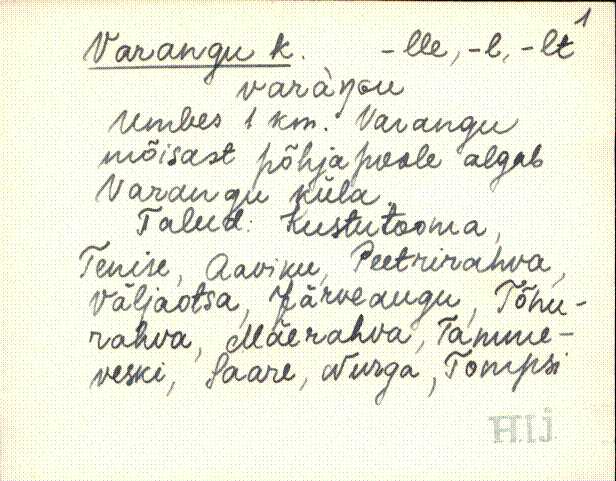 1
Varangu k. -lle, -l, -lt
varàŋɢu
Umbes 1 km. Varangu
mõisast põhja poole algab
Varangu küla.
Talud: Kustutooma,
Tenise, Aaviku, Peetrirahva,
Väljaotsa, Järveaugu, Tõnu-
rahva, Mäerahva, Tamme-
veski, Saare, Nurga, Tompsi
HJj